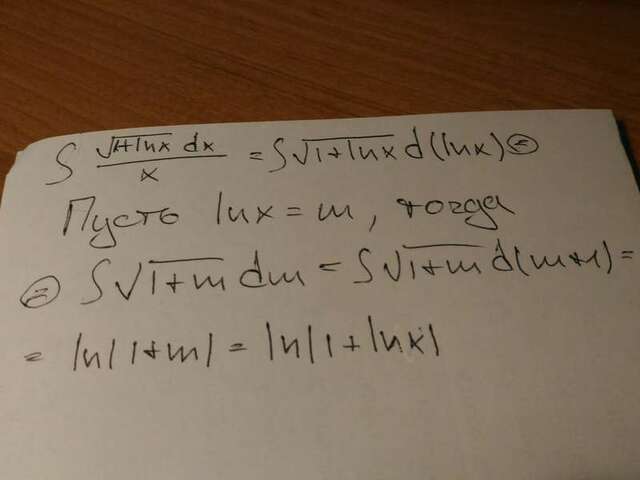 ∫ √(1+lnx) dx / x = ∫ √(1+lnx) d(lnx) ⊜
Пусть lnx = m, тогда
⊜ ∫ √(1+m) dm = ∫ √(1+m) d(m+1) =
= ln|1+m| = ln|1+lnx|